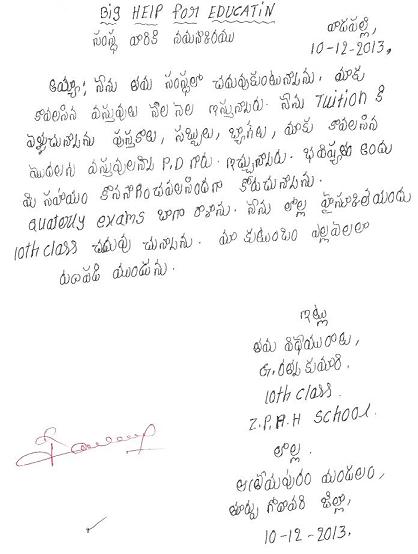 Big HELP for EDUCATIN
సంస్థ వారికి నమస్కరించి
వాడపల్లి,
10-12-2013,
అయ్యా! నేను తమ సంస్థలో చదువుకుంటున్నాను. మాకు
కావలసిన వస్తువులు నెల నెల ఇస్తున్నారు. నేను Tuition కి
వెళ్ళుచున్నాను పుస్తకాలు, సబ్బులు, బ్యాగులు, మాకు కావలసిన
మొదలగు వస్తువులనేవి P,D గారు. ఇచ్చుచున్నారు. భవిష్యత్తు నందు
మీ సహాయం కొనసాగించవలసిందిగా కోరుచున్నాను.
quaterly exams బాగా రాశాను. నేను లొల్ల హైస్కూలునందు
10th class చదువు చున్నాను. మా కుటుంబం ఎల్లవేలలా
రుణపడి యుండును.
ఇట్లు
తమ విధేయురాలు,
రత్న కుమారి.
10th class.
Z.P.H.H School.
లొల్ల.
ఆత్రేయపురం మండలం,
తూర్పు గోదావరి జిల్లా,
10-12-2013.